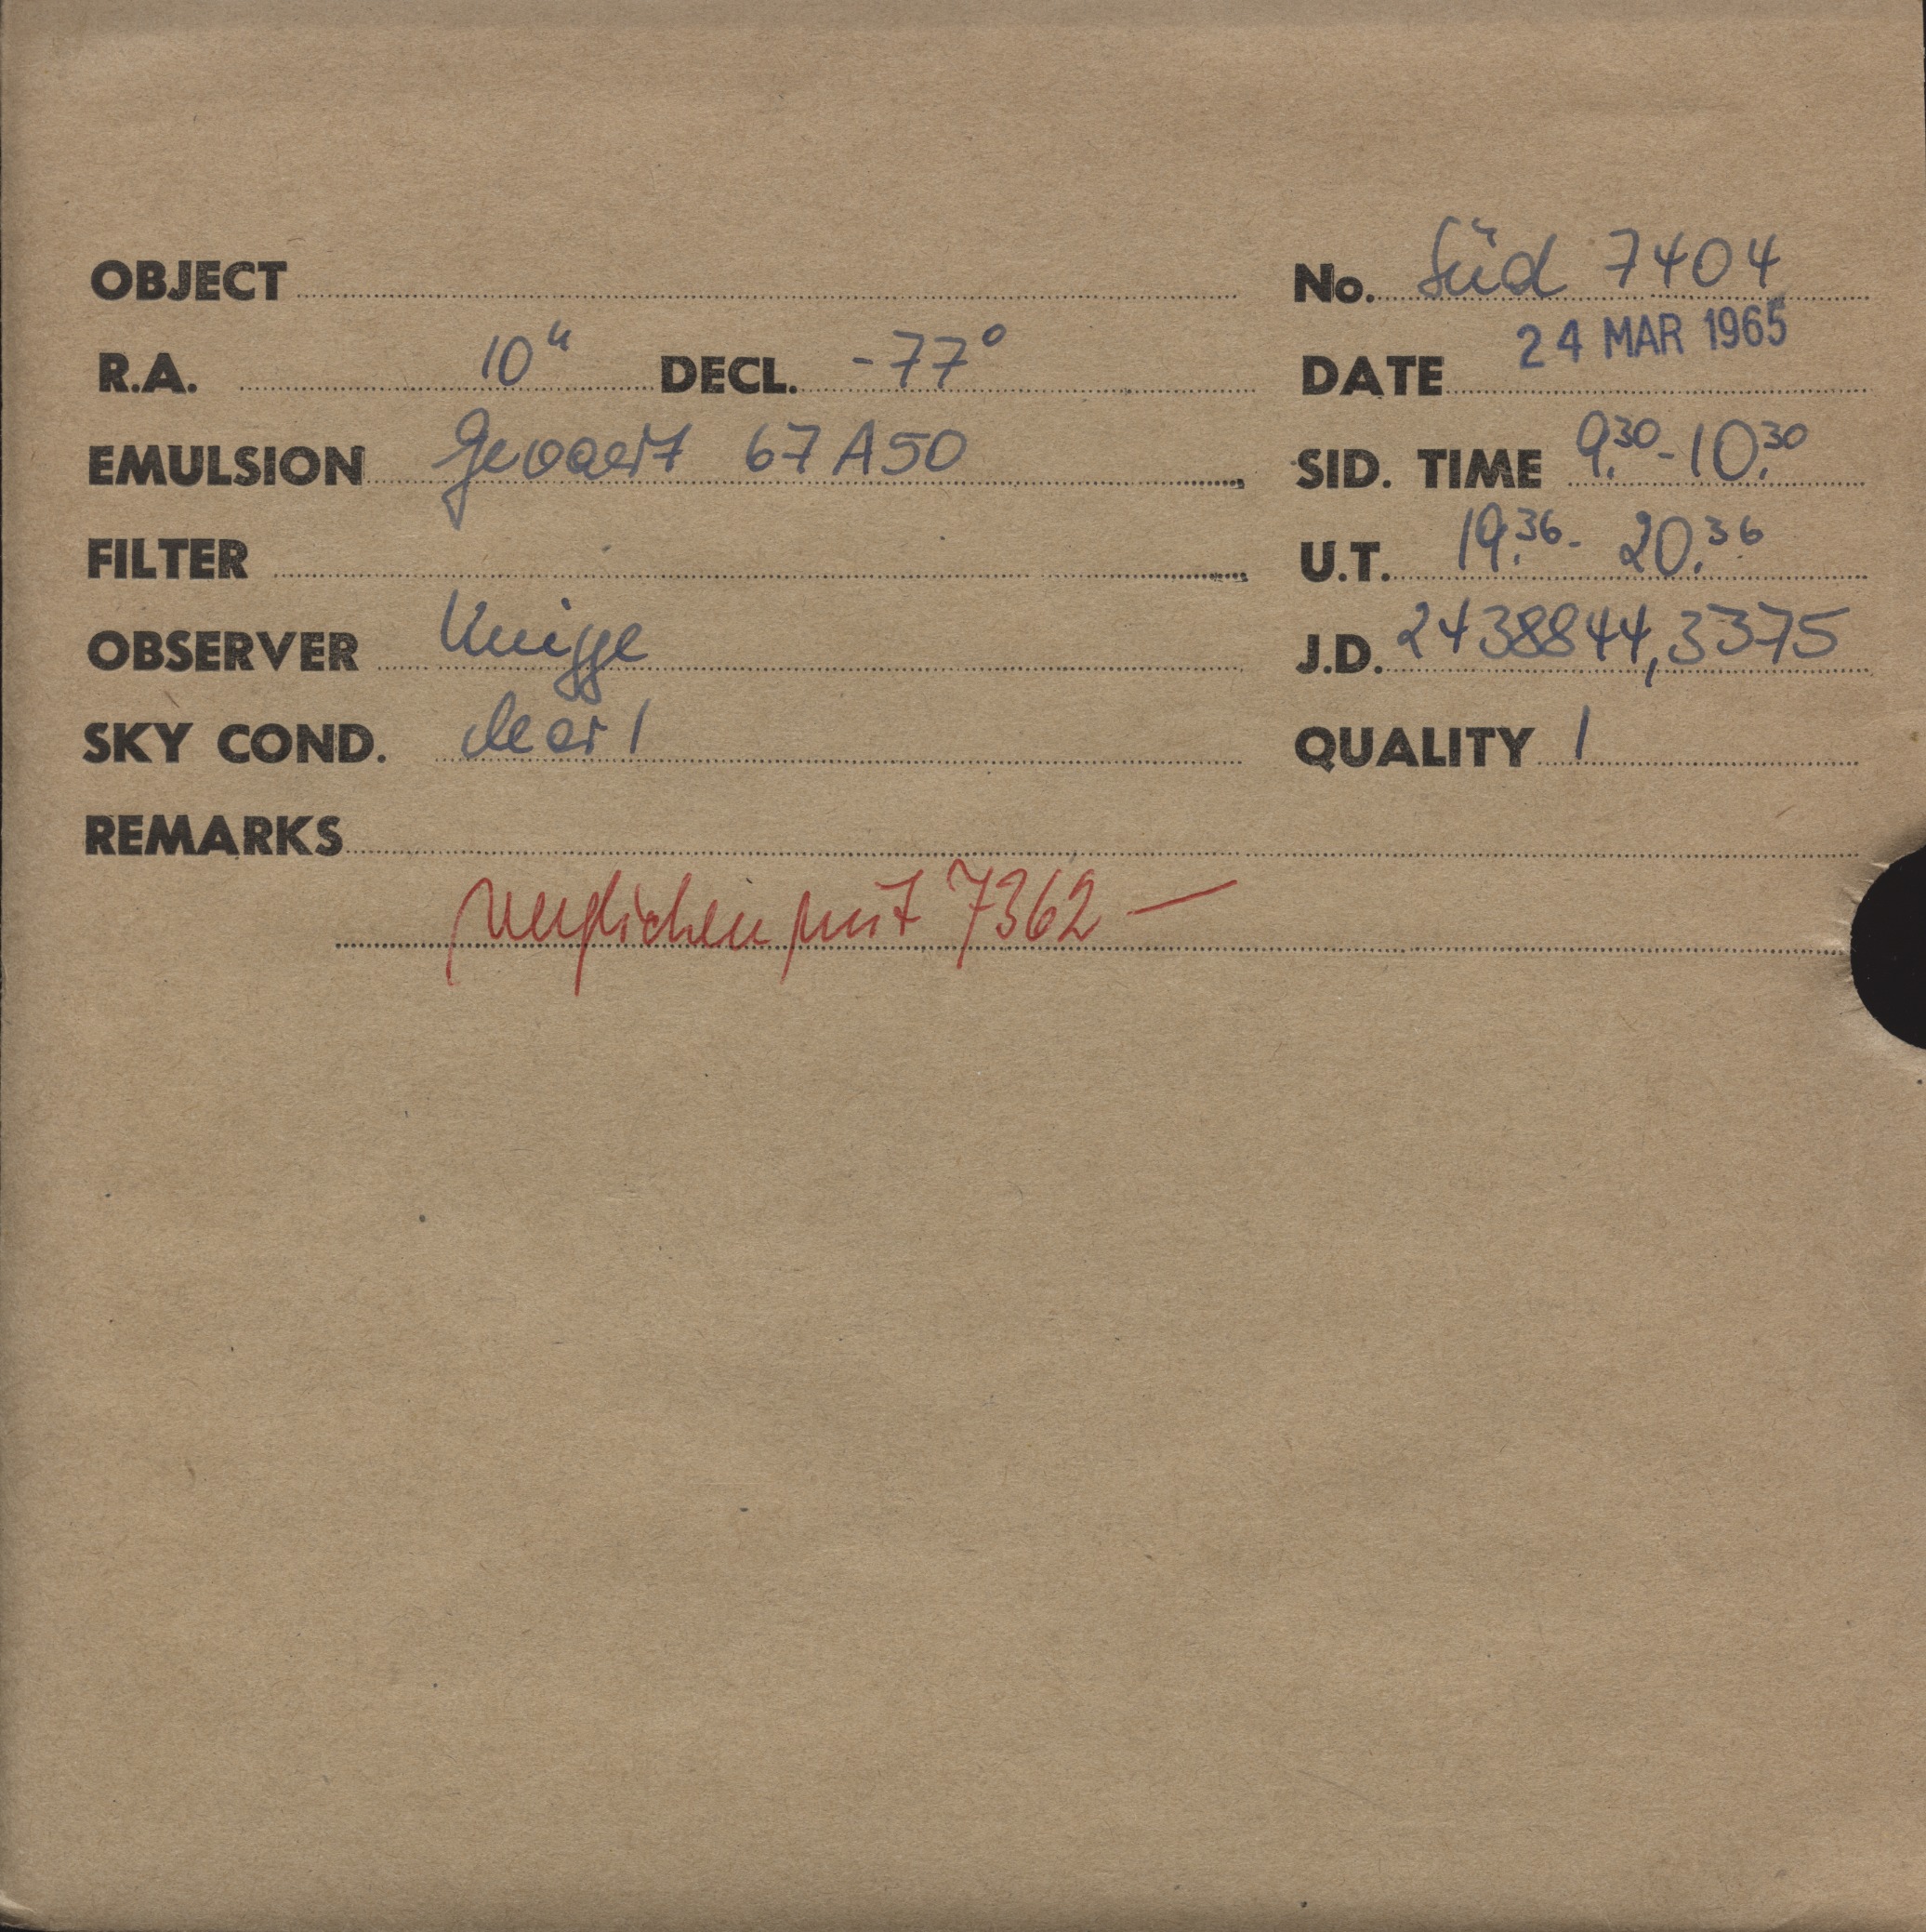 OBJECT No. Süd 7404
R.A. 10h DECL. -77° DATE 24 MAR 1965
EMULSION Gevaert 67A50 SID. TIME 9.30-10.30
FILTER U.T. 19.36- 20.36
OBSERVER Knigge J.D. 2438844,3375
SKY COND. clear 1 QUALITY 1
REMARKS
verglichen mit 7362 —